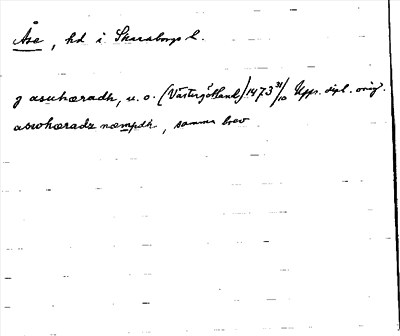 Åse, hd i Skaraborgs l.
J asuhæradh, u. o. (Västergötland) 1473 31/10 Upps. dipl. orig.
aswhæradz næmpdh, samma brev